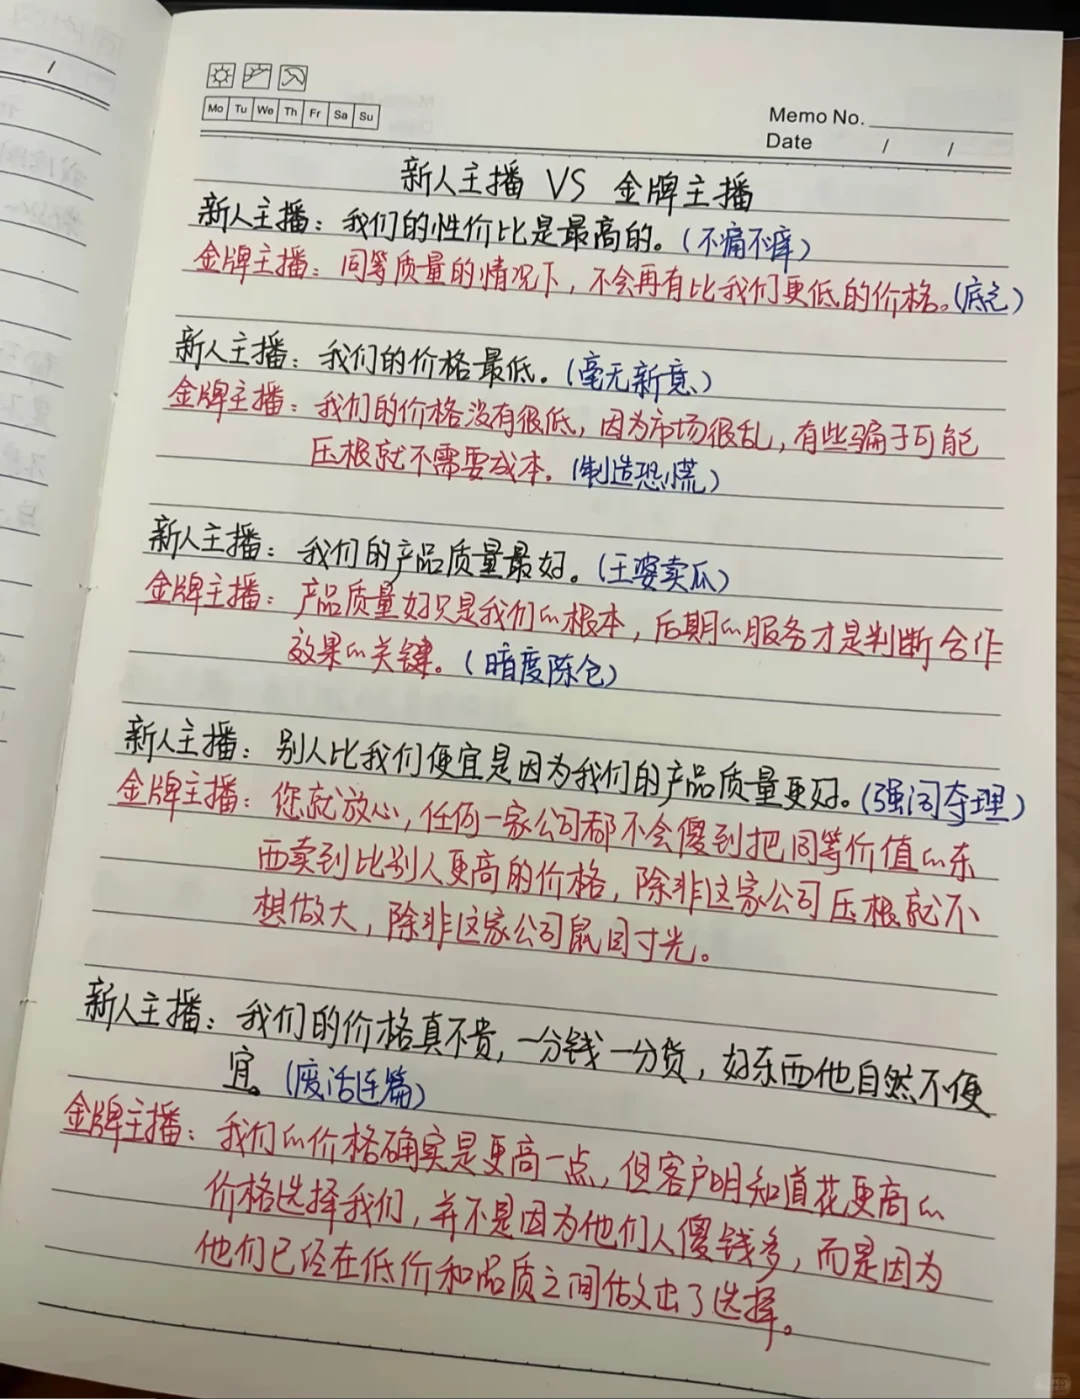 Mo Tu We Th Fr Sa Su
Memo No.
Date / /
新人主播 VS 金牌主播
新人主播：我们的性价比是最高的。（不痛不痒）
金牌主播：同等质量的情况下，不会再有比我们更低的价格。（底气）
新人主播：我们的价格最低。（毫无新意）
金牌主播：我们的价格没有很低，因为市场很乱，有些骗子可能
压根就不需要成本。（制造恐慌）
新人主播：我们的产品质量最好。（王婆卖瓜）
金牌主播：产品质量好只是我们的根本，后期的服务才是判断合作
效果的关键。（暗度陈仓）
新人主播：别人比我们便宜是因为我们的产品质量更好。（强词夺理）
金牌主播：您就放心，任何一家公司都不会傻到把同等价值的东
西卖到比别人更高的价格，除非这家公司压根就不
想做大，除非这家公司鼠目寸光。
新人主播：我们的价格真不贵，一分钱一分货，好东西他自然不便
宜。（废话连篇）
金牌主播：我们的价格确实是更高一点，但客户明知道花更高的
价格选择我们，并不是因为他们人傻钱多，而是因为
他们已经在低价和品质之间做出了选择。